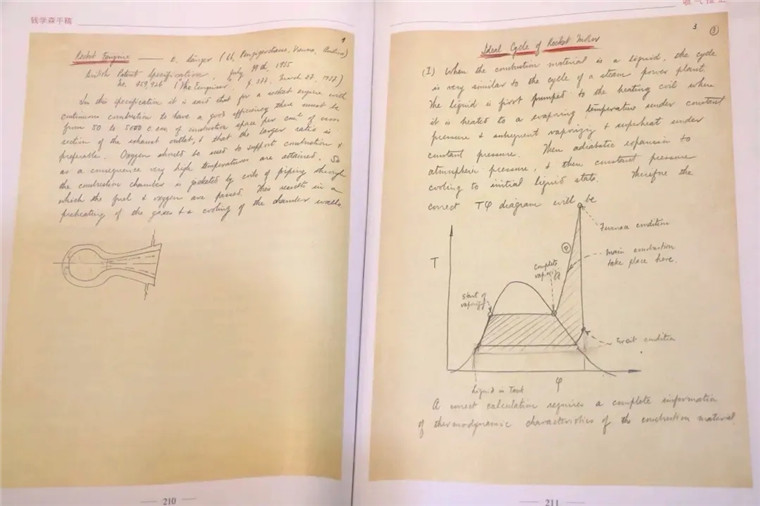 钱学森手稿
9
Rocket Engine — E. Sänger (U. Vienna, Austria)
British Patent Specification, July 9th, 1935
No. 459,926 (The Engineer, p. 233,
In this specification it is said that for a rocket engine with
continuous combustion to have a good efficiency there must be
from 50 to 5000 c.cm of combustion space per cm² of cross
section of the exhaust outlet, & that the larger ratio is
preferable. Oxygen should be used to support combustion &
as a consequence very high temperatures are attained. So
the combustion chamber is jacketed by coils of piping through
which the fuel & oxygen are passed. This results in a
preheating of the gases & a cooling of the chamber walls
210
3
③
Ideal Cycle of Rocket Motor
(I) When the combustion material is a liquid, the cycle
is very similar to the cycle of a steam power plant.
The liquid is first pumped to the heating coil where
it is heated to a evaporizing temperature under constant
pressure & subsequent vaporizing & superheat under
constant pressure. Then adiabatic expansion to
atmosphere pressure, & then constant pressure
cooling to initial liquid state. Therefore the
correct Tφ diagram will be
Furnace condition
main combustion
take place here.
T
Complete
Start of
Exit condition
φ
Liquid in Tank
A correct calculation requires a complete information
of thermodynamic characteristics of the combustion material
211